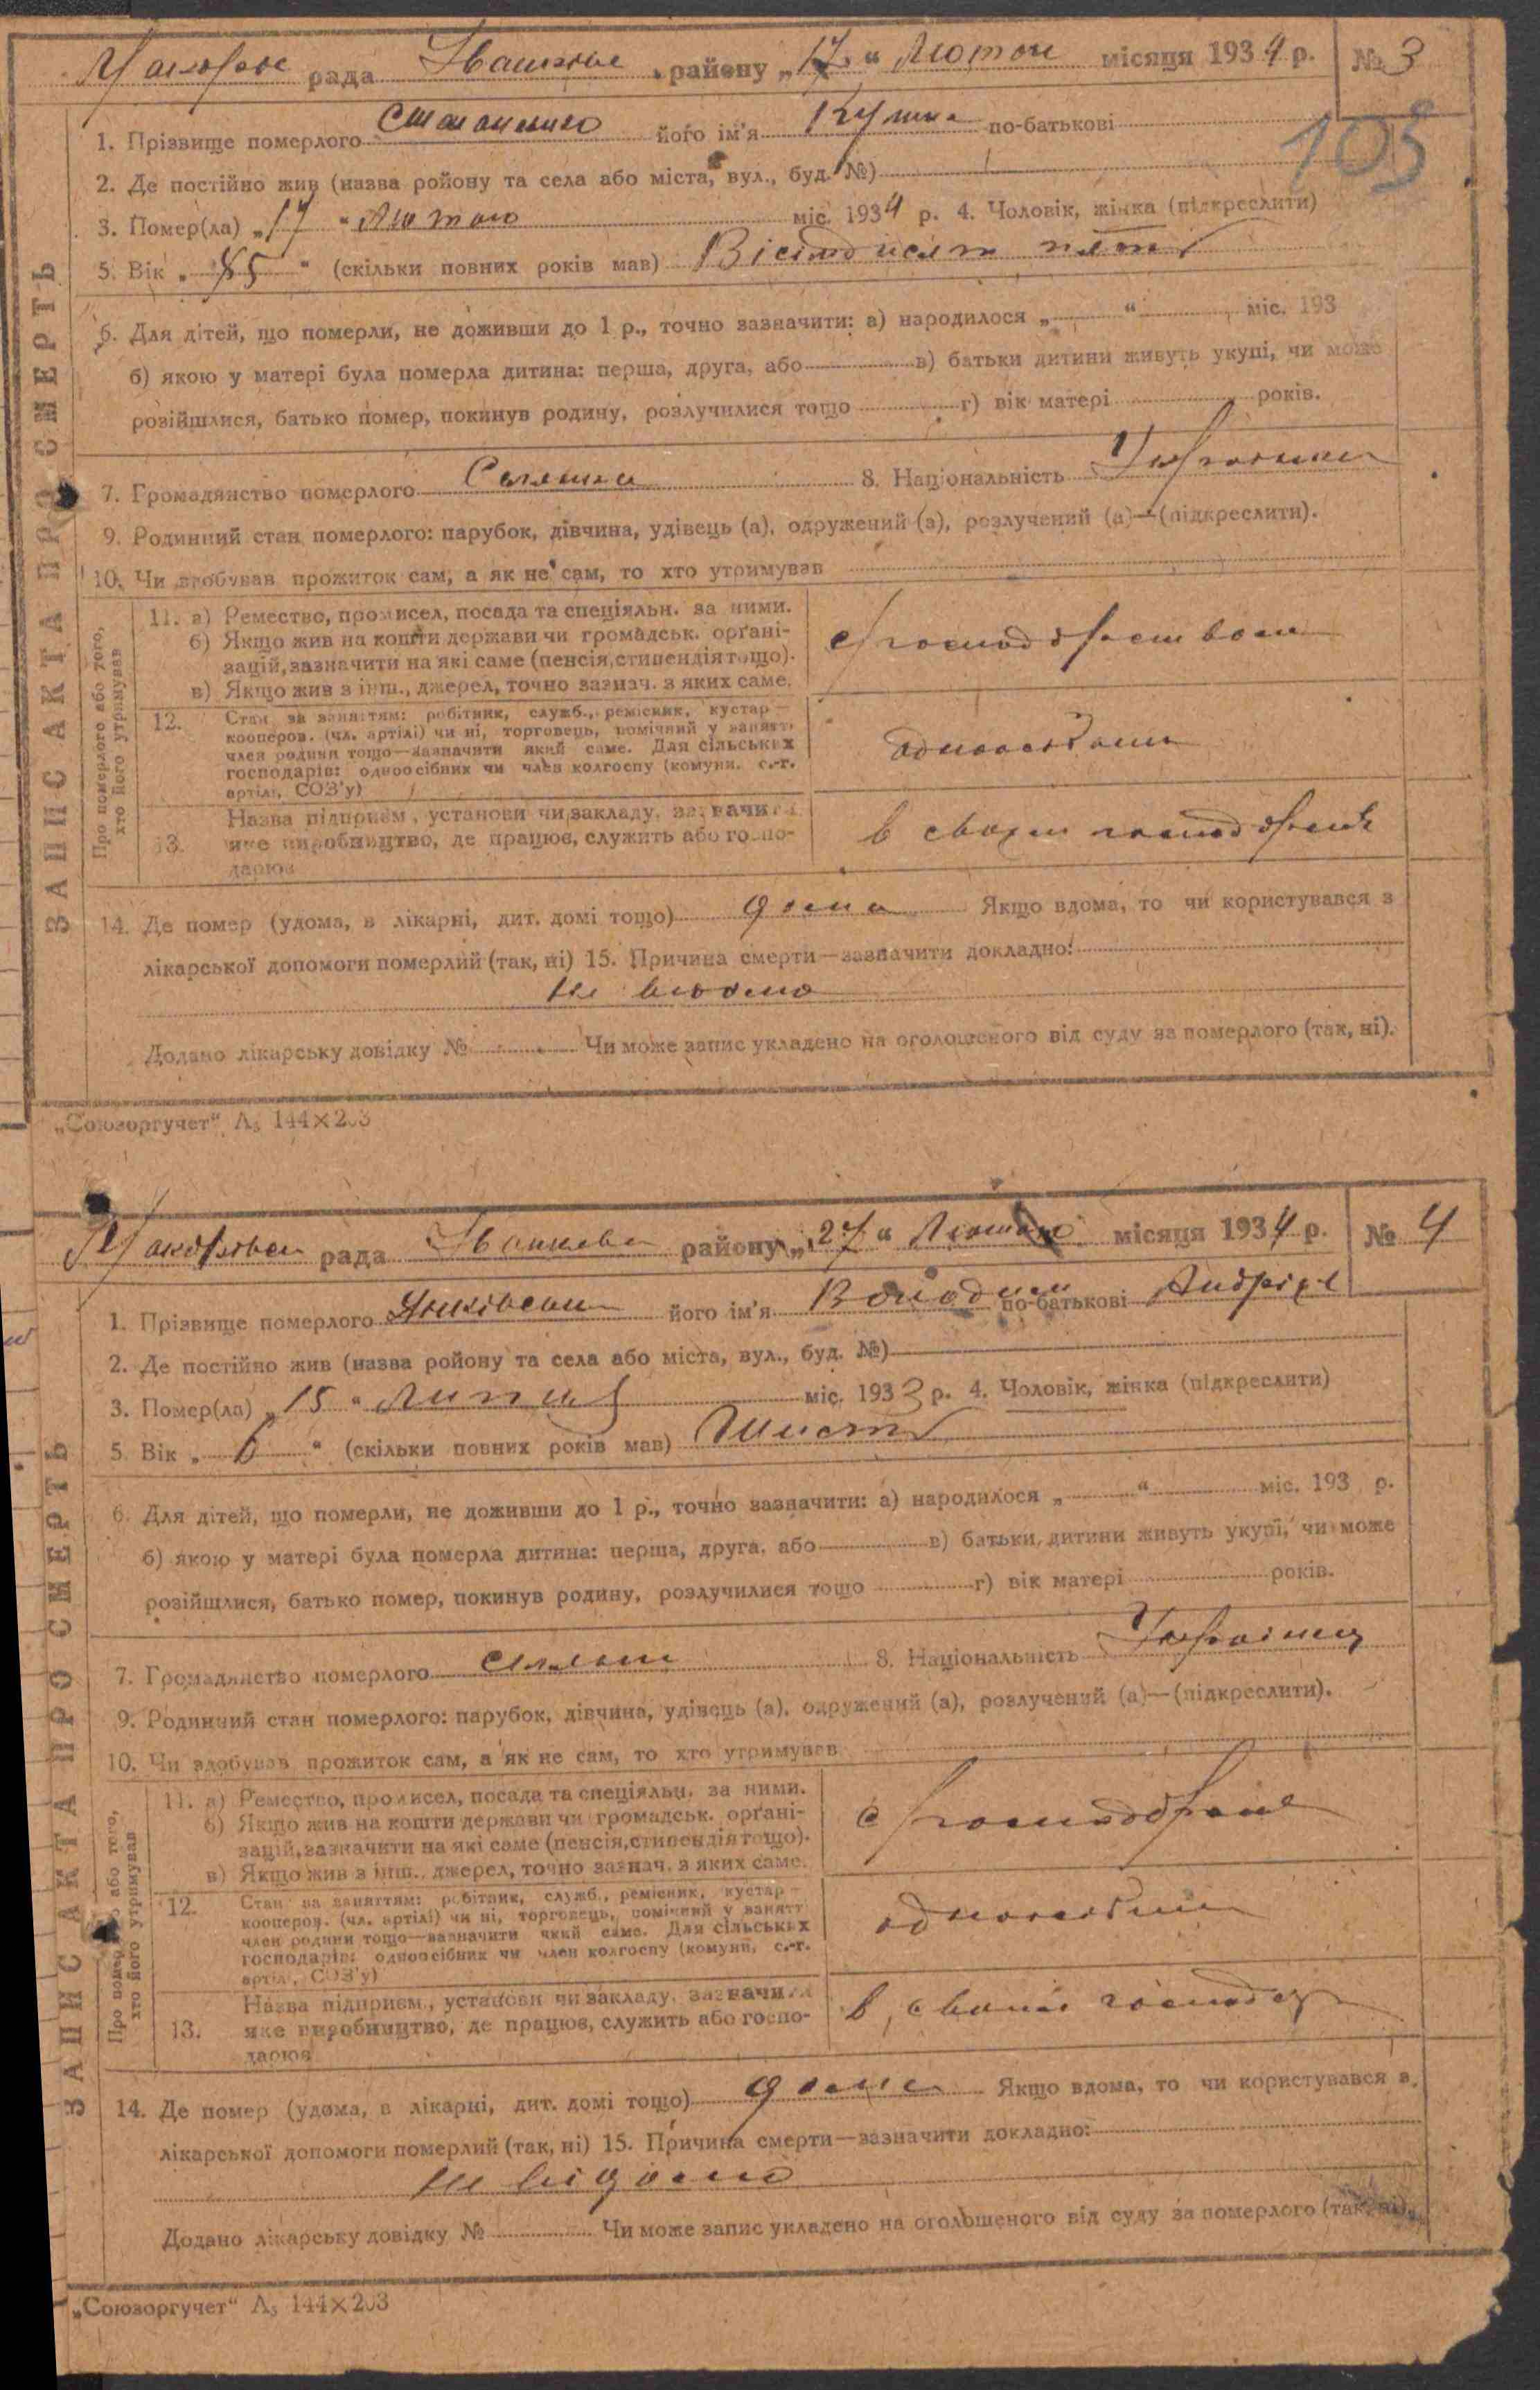 рада района „17“ Лютого місяця 1934 р. № 3
103
1. Прізвище померлого його ім'я по-батькові
2. Де постійно жив (назва ройону та села або міста, вул., буд. №)
3. Помер(ла) „17“ Лютого міс. 1934 р. 4. Чоловік, жінка (підкреслити)
5. Вік „85“ (скільки повних років мав) Вісімдисят пять
6. Для дітей, що померли, не доживши до 1 р., точно зазначити: а) народилося „ “ міс. 193
б) якою у матері була померла дитина: перша, друга, або в) батьки дитини живуть укупі, чи може
розійшлися, батько помер, покинув родину, розлучилися тощо г) вік матері років.
7. Громадянство померлого Селянка 8. Національність
9. Родинний стан померлого: парубок, дівчина, удівець (а), одружений (а), розлучений (а)—(підкреслити).
10. Чи здобував прожиток сам, а як не сам, то хто утримував
ЗАПИС АКТА ПРО СМЕРТЬ
Про померлого або того,
хто його утримував
11. а) Ремество, промисел, посада та спеціяльн. за ними.
б) Якщо жив на кошти держави чи громадськ. орґані-
зацій, зазначити на які саме (пенсія, стипендія тощо).
в) Якщо жив з інш., джерел, точно зазнач. з яких саме.
12. Стан за заняттям: робітник, служб., ремісник, кустар—
кооперов. (чл. артілі) чи ні, торговець, помічний у занятт
член родини тощо—зазначити який саме. Для сільських
господарів: одноосібник чи член колгоспу (комуни, с.-г.
артілі, СОЗ'у)
13. Назва підприєм., установи чи закладу, зазначити
яке виробництво, де працює, служить або госпо-
дарює
14. Де помер (удома, в лікарні, дит. домі тощо) дома Якщо вдома, то чи користувався з
лікарської допомоги померлий (так, ні) 15. Причина смерти—зазначити докладно:
Не
Додано лікарську довідку № Чи може запис укладено на оголошеного від суду за померлого (так, ні).
„Союзоргучет“ А₅ 144×203
рада району „27“ Лютого місяця 1934 р. № 4
1. Прізвище померлого його ім'я по-батькові
2. Де постійно жив (назва ройону та села або міста, вул., буд. №)
3. Помер(ла) „15“ міс. 1933 р. 4. Чоловік, жінка (підкреслити)
5. Вік „6“ (скільки повних років мав) Шисть
6. Для дітей, що померли, не доживши до 1 р., точно зазначити: а) народилося „ “ міс. 193 р.
б) якою у матері була померла дитина: перша, друга, або в) батьки дитини живуть укупі, чи може
розійшлися, батько помер, покинув родину, розлучилися тощо г) вік матері років.
7. Громадянство померлого 8. Національність
9. Родинний стан померлого: парубок, дівчина, удівець (а), одружений (а), розлучений (а)—(підкреслити).
10. Чи здобував прожиток сам, а як не сам, то хто утримував
ЗАПИС АКТА ПРО СМЕРТЬ
Про померлого або того,
хто його утримував
11. а) Ремество, промисел, посада та спеціяльн. за ними.
б) Якщо жив на кошти держави чи громадськ. орґані-
зацій, зазначити на які саме (пенсія, стипендія тощо).
в) Якщо жив з інш., джерел, точно зазнач. з яких саме.
12. Стан за заняттям: робітник, служб., ремісник, кустар—
кооперов. (чл. артілі) чи ні, торговець, помічний у занятт
член родини тощо—зазначити який саме. Для сільських
господарів: одноосібник чи член колгоспу (комуни, с.-г.
артілі, СОЗ'у)
13. Назва підприєм., установи чи закладу, зазначити
яке виробництво, де працює, служить або госпо-
дарює
14. Де помер (удома, в лікарні, дит. домі тощо) дома Якщо вдома, то чи користувався з
лікарської допомоги померлий (так, ні) 15. Причина смерти—зазначити докладно:
Не відомо
Додано лікарську довідку № Чи може запис укладено на оголошеного від суду за померлого (так, ні).
„Союзоргучет“ А₅ 144×203